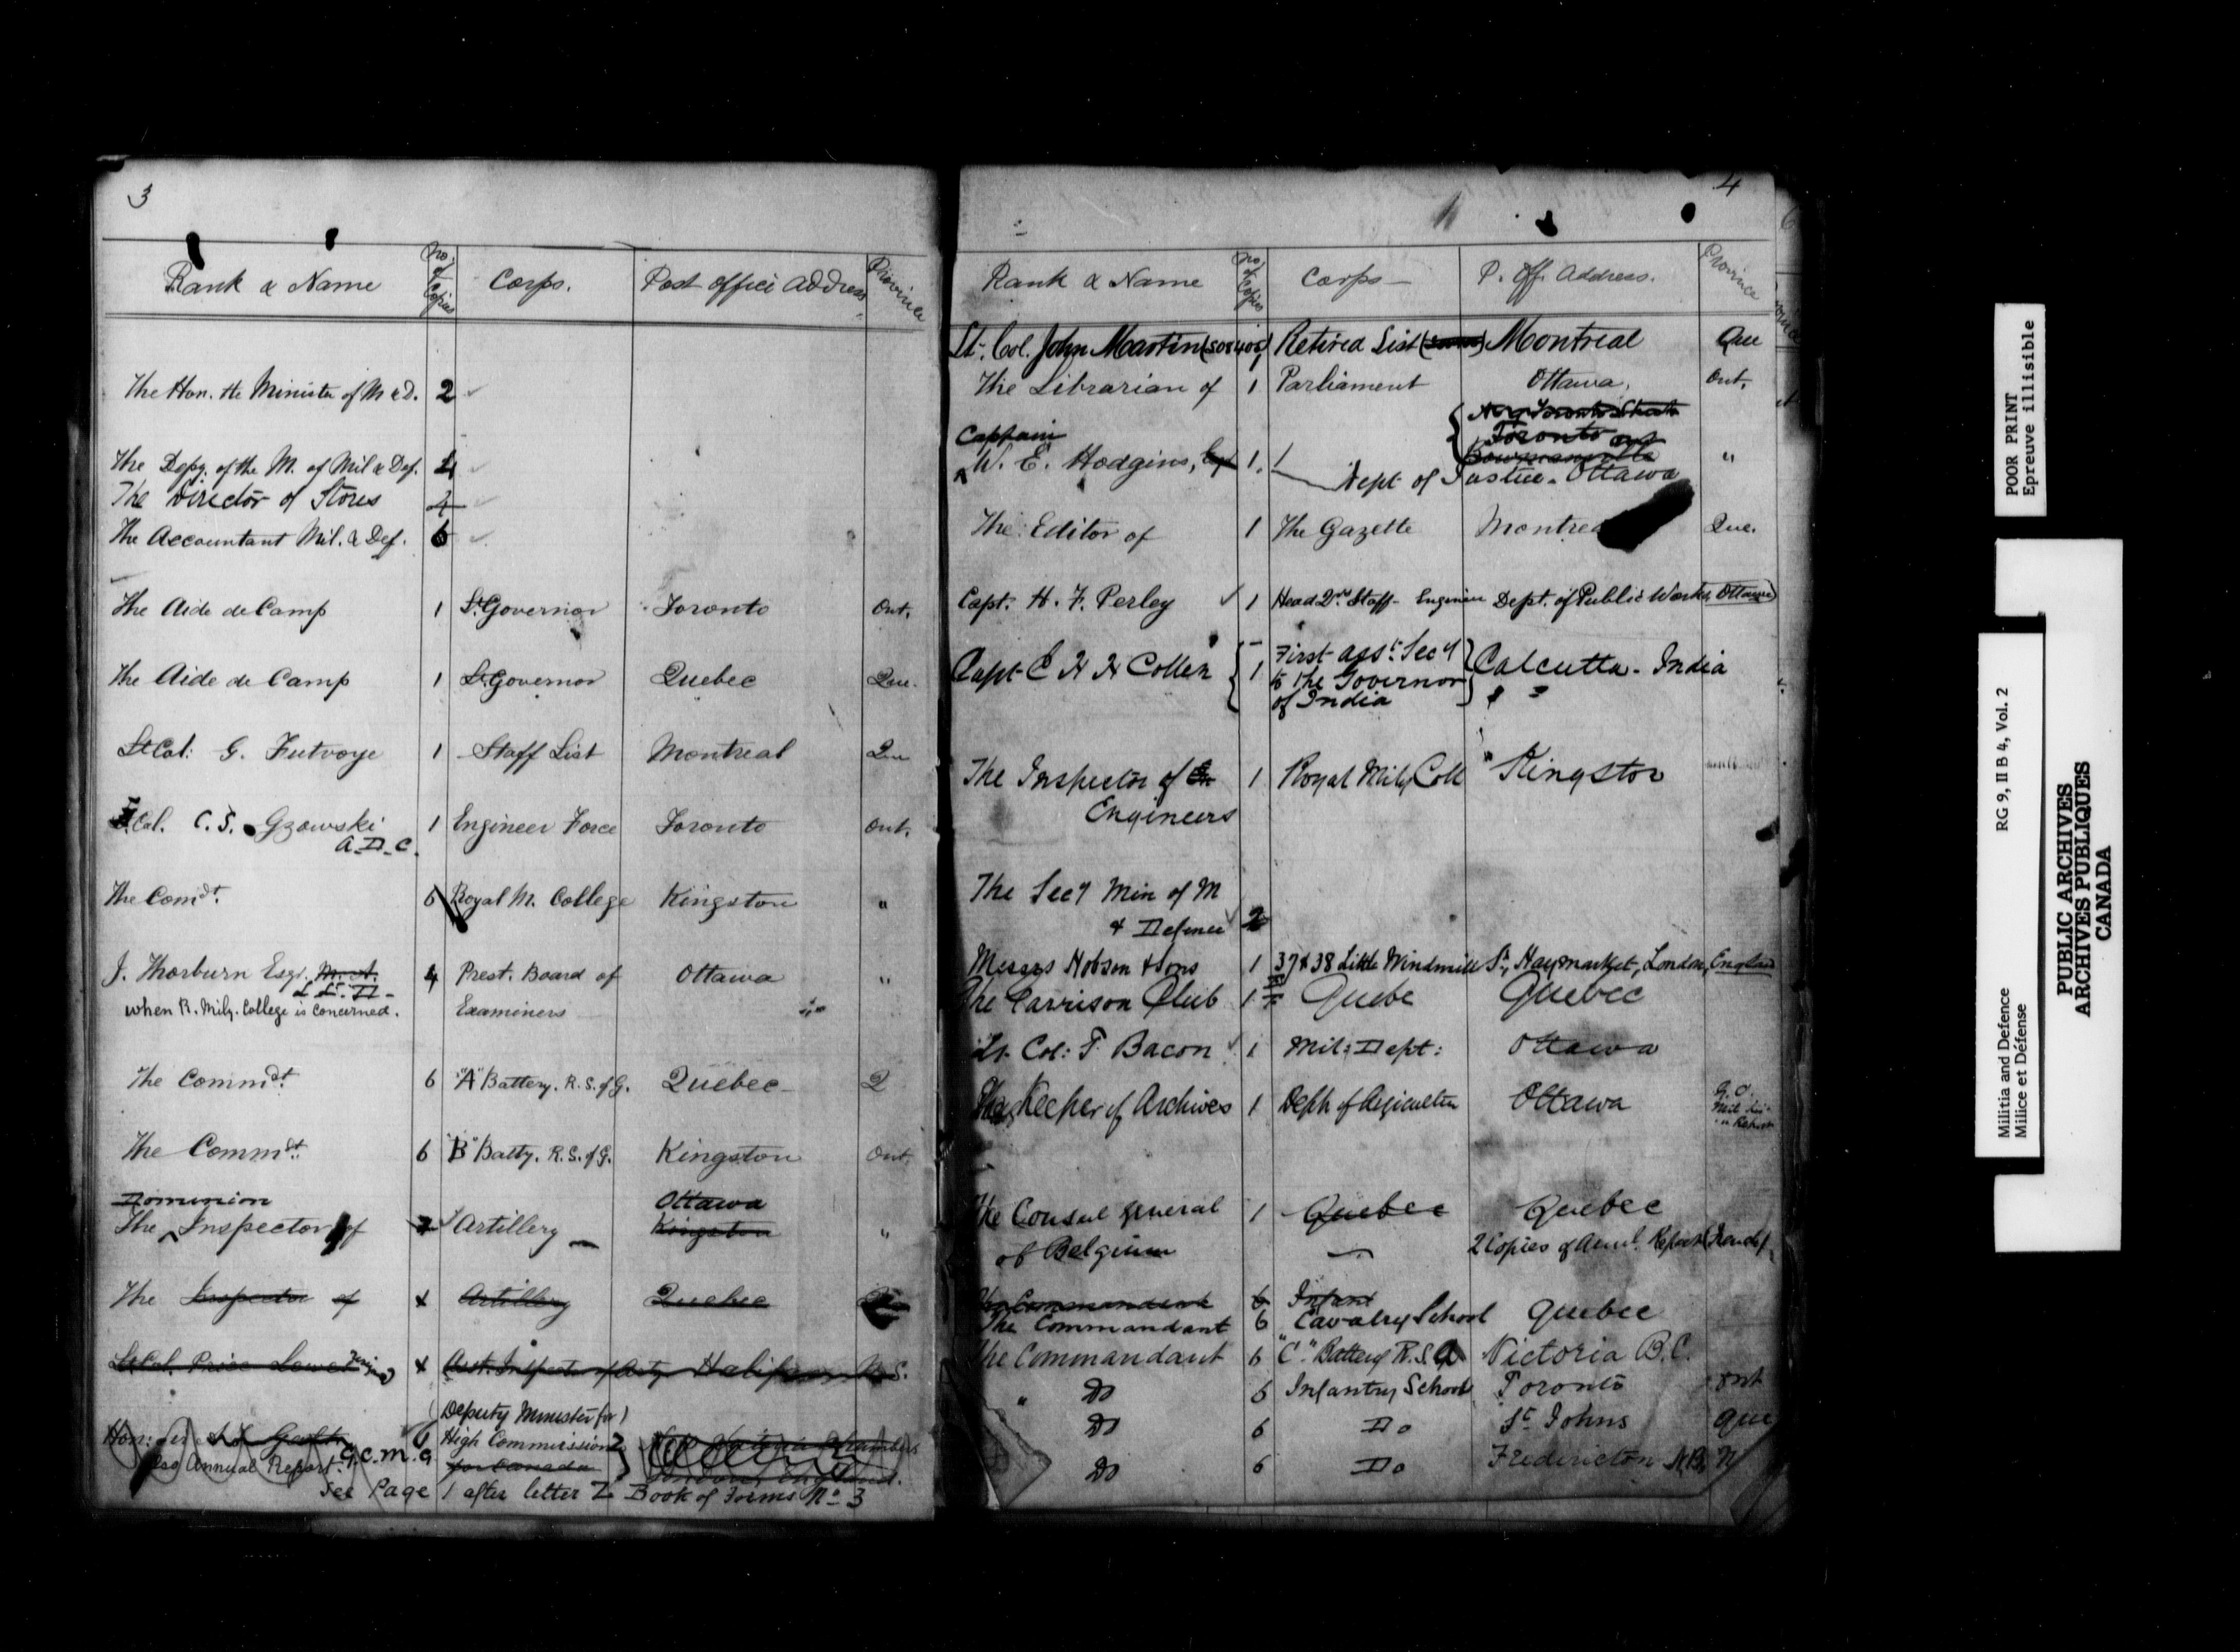 3
Rank & Name No. of Copies Corps. Post Office Address Province
The Hon. the Minister of M & D. 2
The Depy. of the M. of Mil & Def. 4
The Director of Stores 4
The Accountant Mil. & Def. 6
The Aide de Camp 1 Lt. Governor Toronto Ont.
The Aide de Camp 1 Lt. Governor Quebec Que.
Lt Col. G. Futvoye 1 Staff List Montreal Que
Lt. Col. C. S. Gzowski 1 Engineer Force Toronto Ont.
A.D.C.
The Comdt. 6 Royal M. College Kingston "
J. Thorburn Esqr. M.A. 4 Prest. Board of Ottawa "
L.L.D.
when R. Mily. College is concerned. Examiners
The Commdt. 6 "A" Battery. R.S. of G. Quebec Q
The Commdt. 6 "B" Batty. R.S. of G. Kingston Ont.
Dominion Ottawa
The Inspector of Artillery Kingston "
The Inspector of Artillery Quebec
Lt Col. Price Asst. Inspector of Arty Halifax N.S.
(Deputy Minister for)
Hon: Galt High Commissioner Victoria Chambers
Annual Report. G.C.M.G. for Canada London, England.
See Page 1 after letter Z Book of Forms No. 3
4
Rank & Name No. of Copies Corps P. Off. Address. Province
Lt. Col. John Martin Retired List Montreal Que
The Librarian of 1 Parliament Ottawa, Ont.
Toronto Street
Captain Toronto Ont
W. E. Hodgins, 1. Bowmanville "
Dept of Justice. Ottawa
The Editor of 1 The Gazette Montreal Que.
Capt. H. F. Perley 1 Head Qrs. Staff- Engineer Dept. of Public Works, Ottawa
First Asst. Secy
Capt E H H Collen 1 to the Governor Calcutta - India
of India
The Inspector of 1 Royal Mily Coll Kingston
Engineers
The Secy Min of M
& Defence 2
Messrs Hobson & Sons 1 37 & 38 Little Windmill St, Haymarket, London, England
The Garrison Club 1 Quebe Quebec
Lt. Col: F. Bacon 1 Mil: Dept: Ottawa
The Keeper of Archives 1 Depth of Agriculture Ottawa G.O.
Mil
The Consul general 1 Quebec Quebec
of Belgium 2 Copies of Annl. Report (French)
The Commandant 6 Infant
The Commandant 6 Cavalry School Quebec
The Commandant 6 "C" Battery R.S.A Victoria B.C.
" Do 6 Infantry School Toronto Ont
Do 6 Do St. Johns Que
Do 6 Do Fredericton N.B.
POOR PRINT
Epreuve illisible
Militia and Defence RG 9, II B 4, Vol. 2
Milice et Défense
PUBLIC ARCHIVES
ARCHIVES PUBLIQUES
CANADA